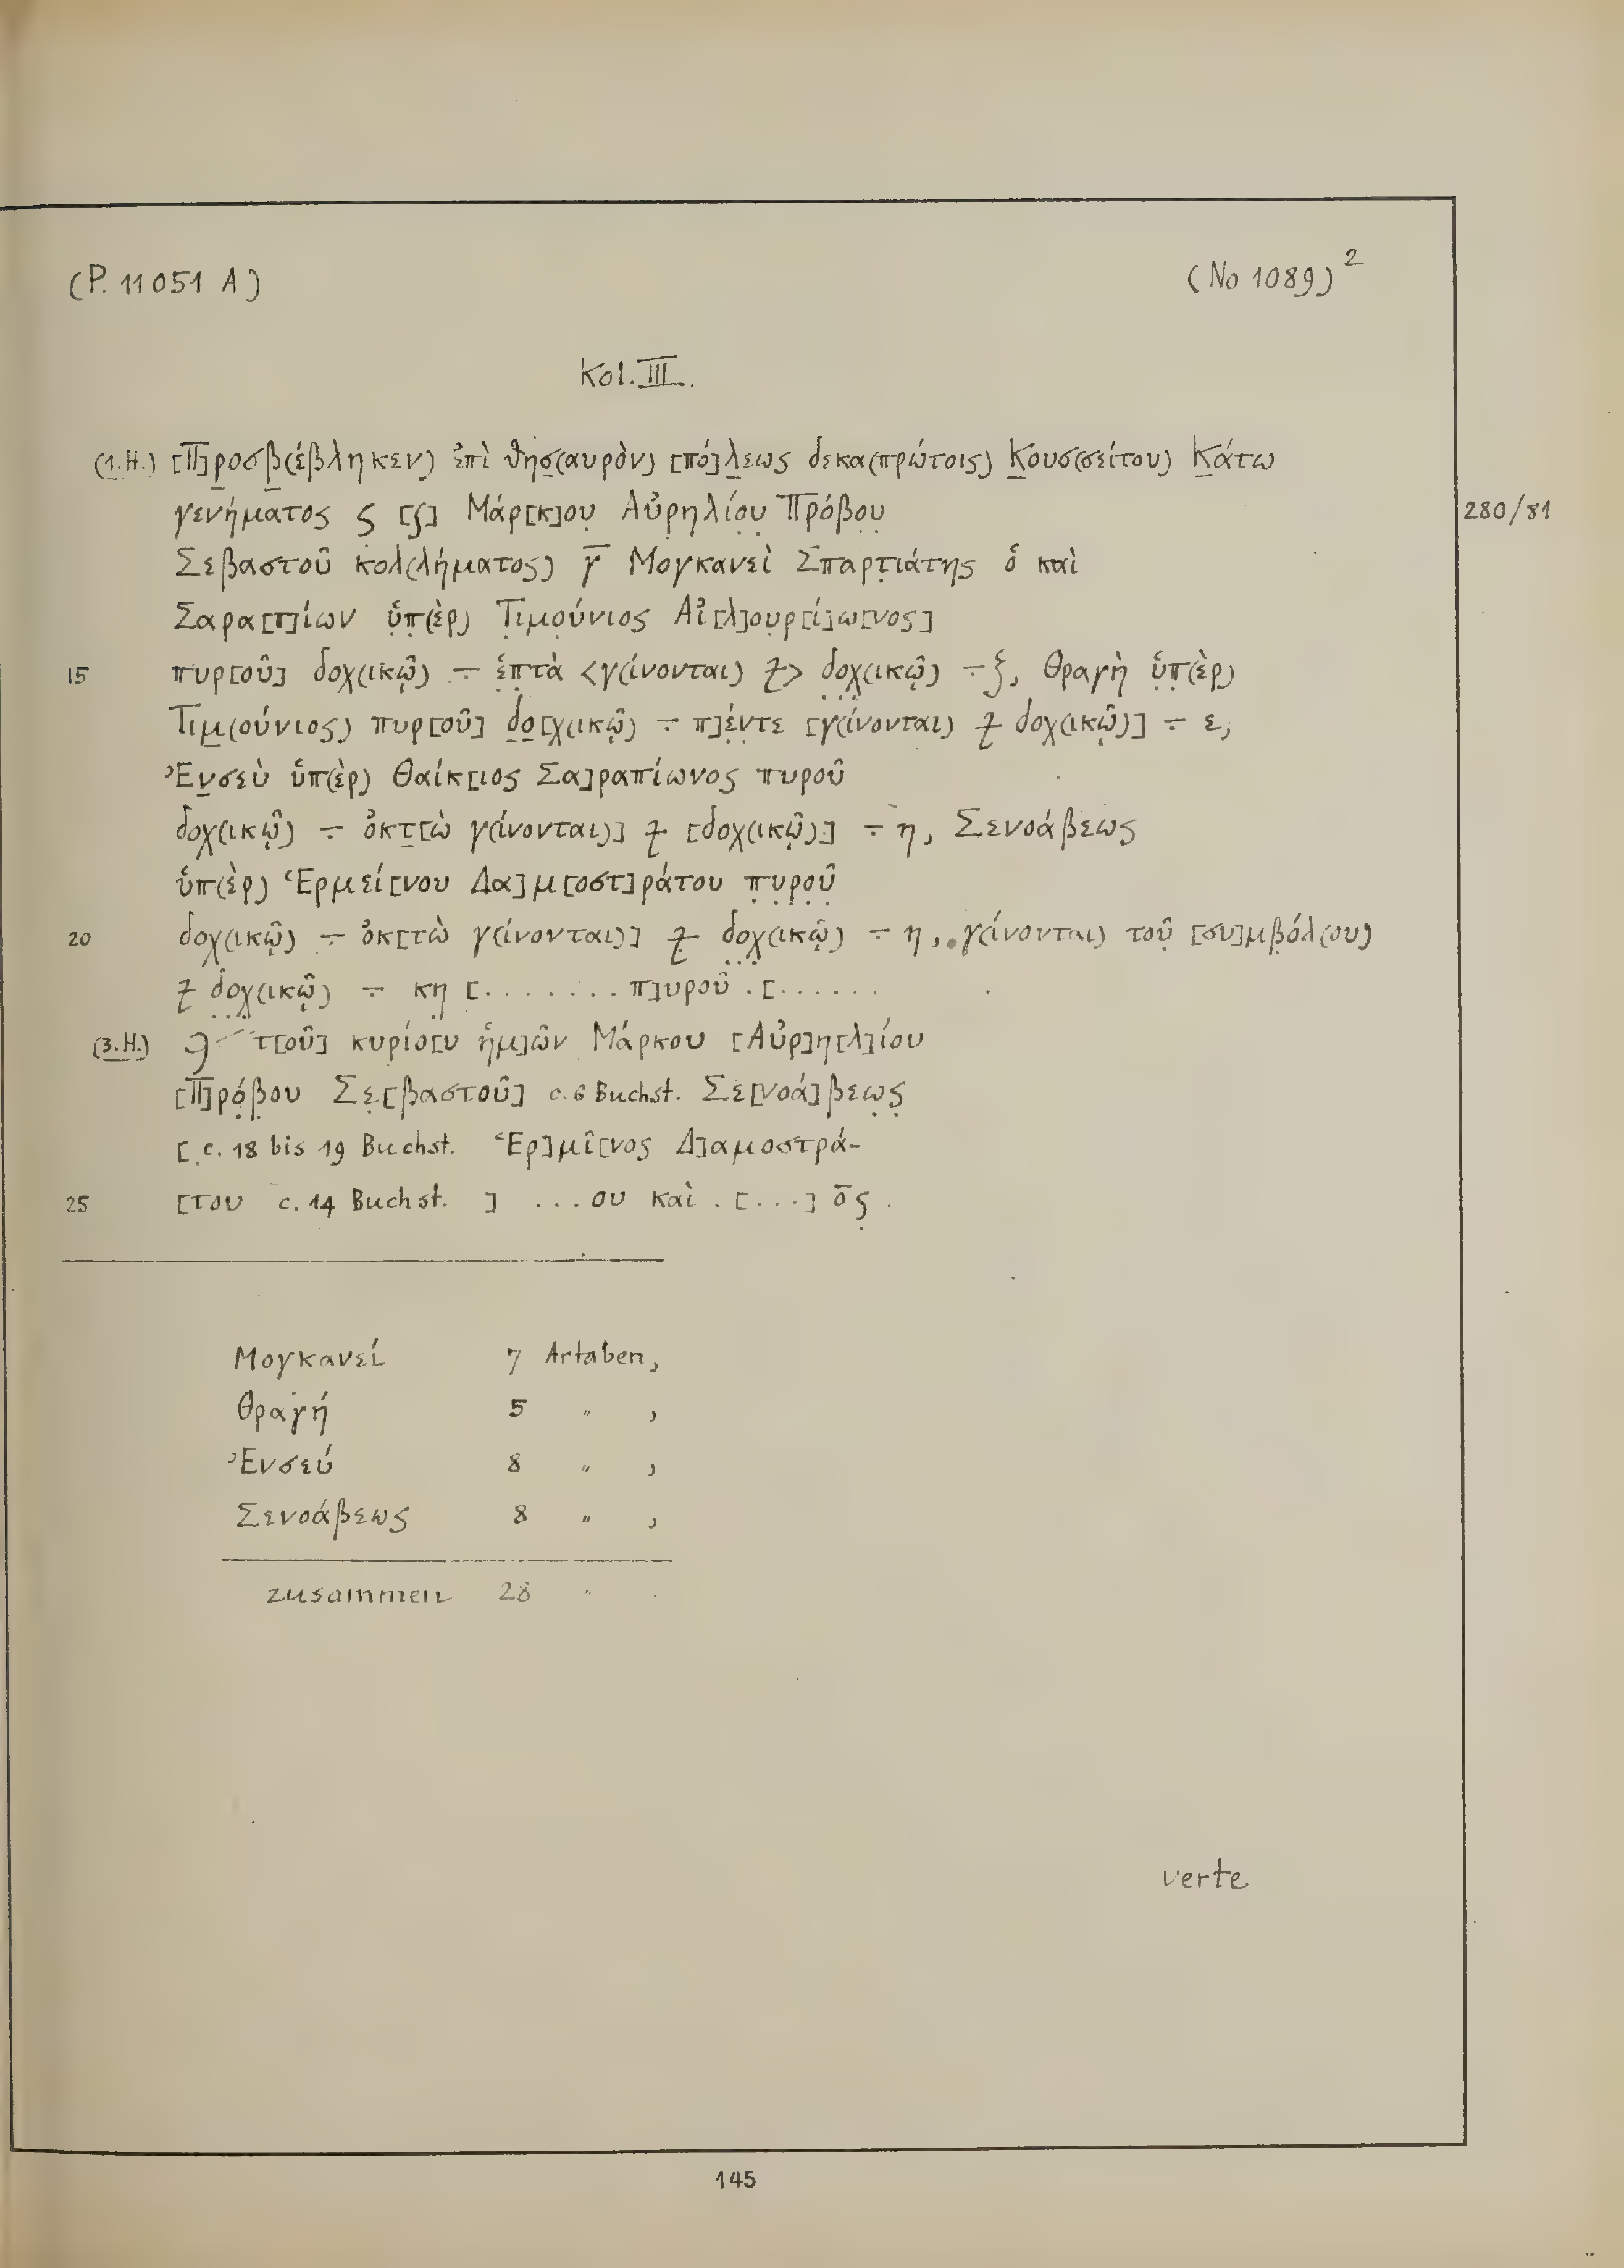 (P. 11051 A)
(No 1089)²
Kol. III.
(1.H.) [Π]ροσβ(έβληκεν) ἐπὶ θησ(αυρὸν) [πό]λεως δεκα(πρώτοις) Κουσ(σείτου) Κάτω
γενήματος ς [ʃ] Μάρ[κ]ου Αὐρηλίου Πρόβου
280/81
Σεβαστοῦ κολ(λήματος) γ̅ Μογκανεὶ Σπαρτιάτης ὁ καὶ
Σαρα[π]ίων ὑπ(ὲρ) Τιμούνιος Αἰ[λ]ουρ[ί]ω[νος]
15 πυρ[οῦ] δοχ(ικῷ) ÷ ἑπτὰ <γ(ίνονται) ⳨> δοχ(ικῷ) ÷ ζ, Θραγὴ ὑπ(ὲρ)
Τιμ(ούνιος) πυρ[οῦ] δο[χ(ικῷ) ÷ π]έντε [γ(ίνονται) ⳨ δοχ(ικῷ)] ÷ ε,
Ἐνσεὺ ὑπ(ὲρ) Θαίκ[ιος Σα]ραπίωνος πυροῦ
δοχ(ικῷ) ÷ ὀκτ[ὼ γ(ίνονται)] ⳨ [δοχ(ικῷ)] ÷ η, Σενοάβεως
ὑπ(ὲρ) Ἑρμεί[νου Δα]μ[οστ]ράτου πυροῦ
20 δοχ(ικῷ) ÷ ὀκ[τὼ γ(ίνονται)] ⳨ δοχ(ικῷ) ÷ η, γ(ίνονται) τοῦ [συ]μβόλ(ου)
⳨ δοχ(ικῷ) ÷ κη [. . . . . . . . π]υροῦ . [. . . . . .
(3.H.) τ[οῦ] κυρίο[υ ἡμ]ῶν Μάρκου [Αὐρ]η[λ]ίου
[Π]ρόβου Σε[βαστοῦ] c. 6 Buchst. Σε[νοά]βεως
[c. 18 bis 19 Buchst. Ἑρ]μῖ[νος Δ]αμοστρά-
25 [του c. 14 Buchst. ] ...ου καὶ . [...] ο̅ς .
Μογκανεί 7 Artaben,
Θραγή 5 " ,
Ἐνσεύ 8 " ,
Σενοάβεως 8 " ,
zusammen 28 " .
verte
145